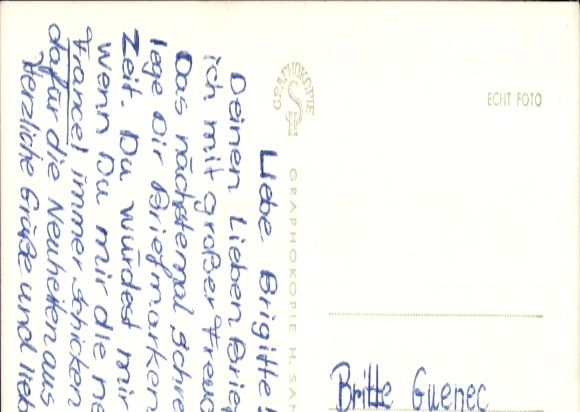 Liebe Brigitte!
Deinen Lieben Brief
ich mit großer Freud
Das nächstemal Schre
lege Dir Briefmarken
Zeit. Du würdest mir
wenn Du mir die ne
France) immer schicken
dafür die Neuheiten aus
Herzliche Grüße und lieb
GRAPHOKOPIE
GRAPHOKOPIE H. SAN
ECHT FOTO
Britte Guenec